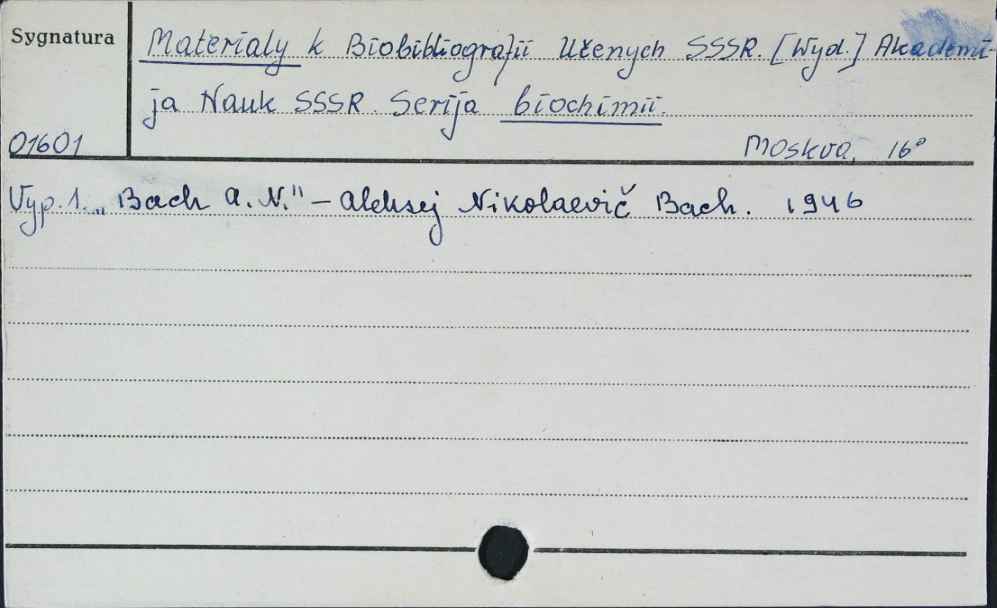 Sygnatura
Materialy k Biobibliografii Učenych SSSR. [Wyd.] Akademi-
ja Nauk SSSR. Serija biochimii.
01601
Moskva, 16°
Vyp. 1. „Bach A. N." – Aleksej Nikolaevič Bach. 1946